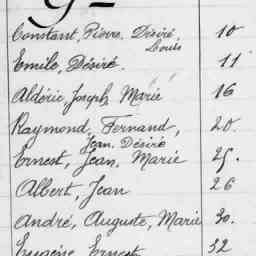 Constant, Pierre, Désiré 10
Louis
Emile, Désiré. 11
Aldéric, Joseph Marie 16
Raymond, Fernand, 20
Jean, Désiré
Ernest, Jean, Marie 25.
Albert, Jean 26
André, Auguste, Marie 30.
Eugène Ernest 32